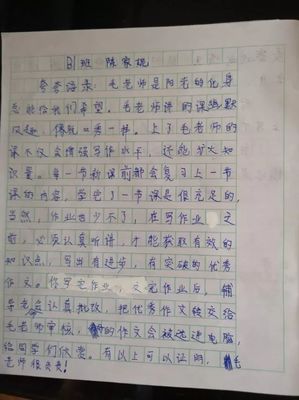 B班 陈家妮
夸夸语录：毛老师是阳光的化身
总能给我们希望，毛老师讲的课幽默
风趣，像脱口秀一样。上了毛老师的
课不仅会增强写作水平，还能扩大知
识量。每一节新课前都会复习上一节
课的内容，学完了一节课是很充足的，
当然，作业也少不了，在写作业之
前，必须认真听讲，才能获取有效的
知识点，写出有进步，有突破的优秀
作文。你写完作业，交完作业后，辅
导老会认真批改，把优秀作文转交给
毛老师审核，你的作文会被选进电脑，
给同学们欣赏。有以上可以证明，毛
老师很负责！